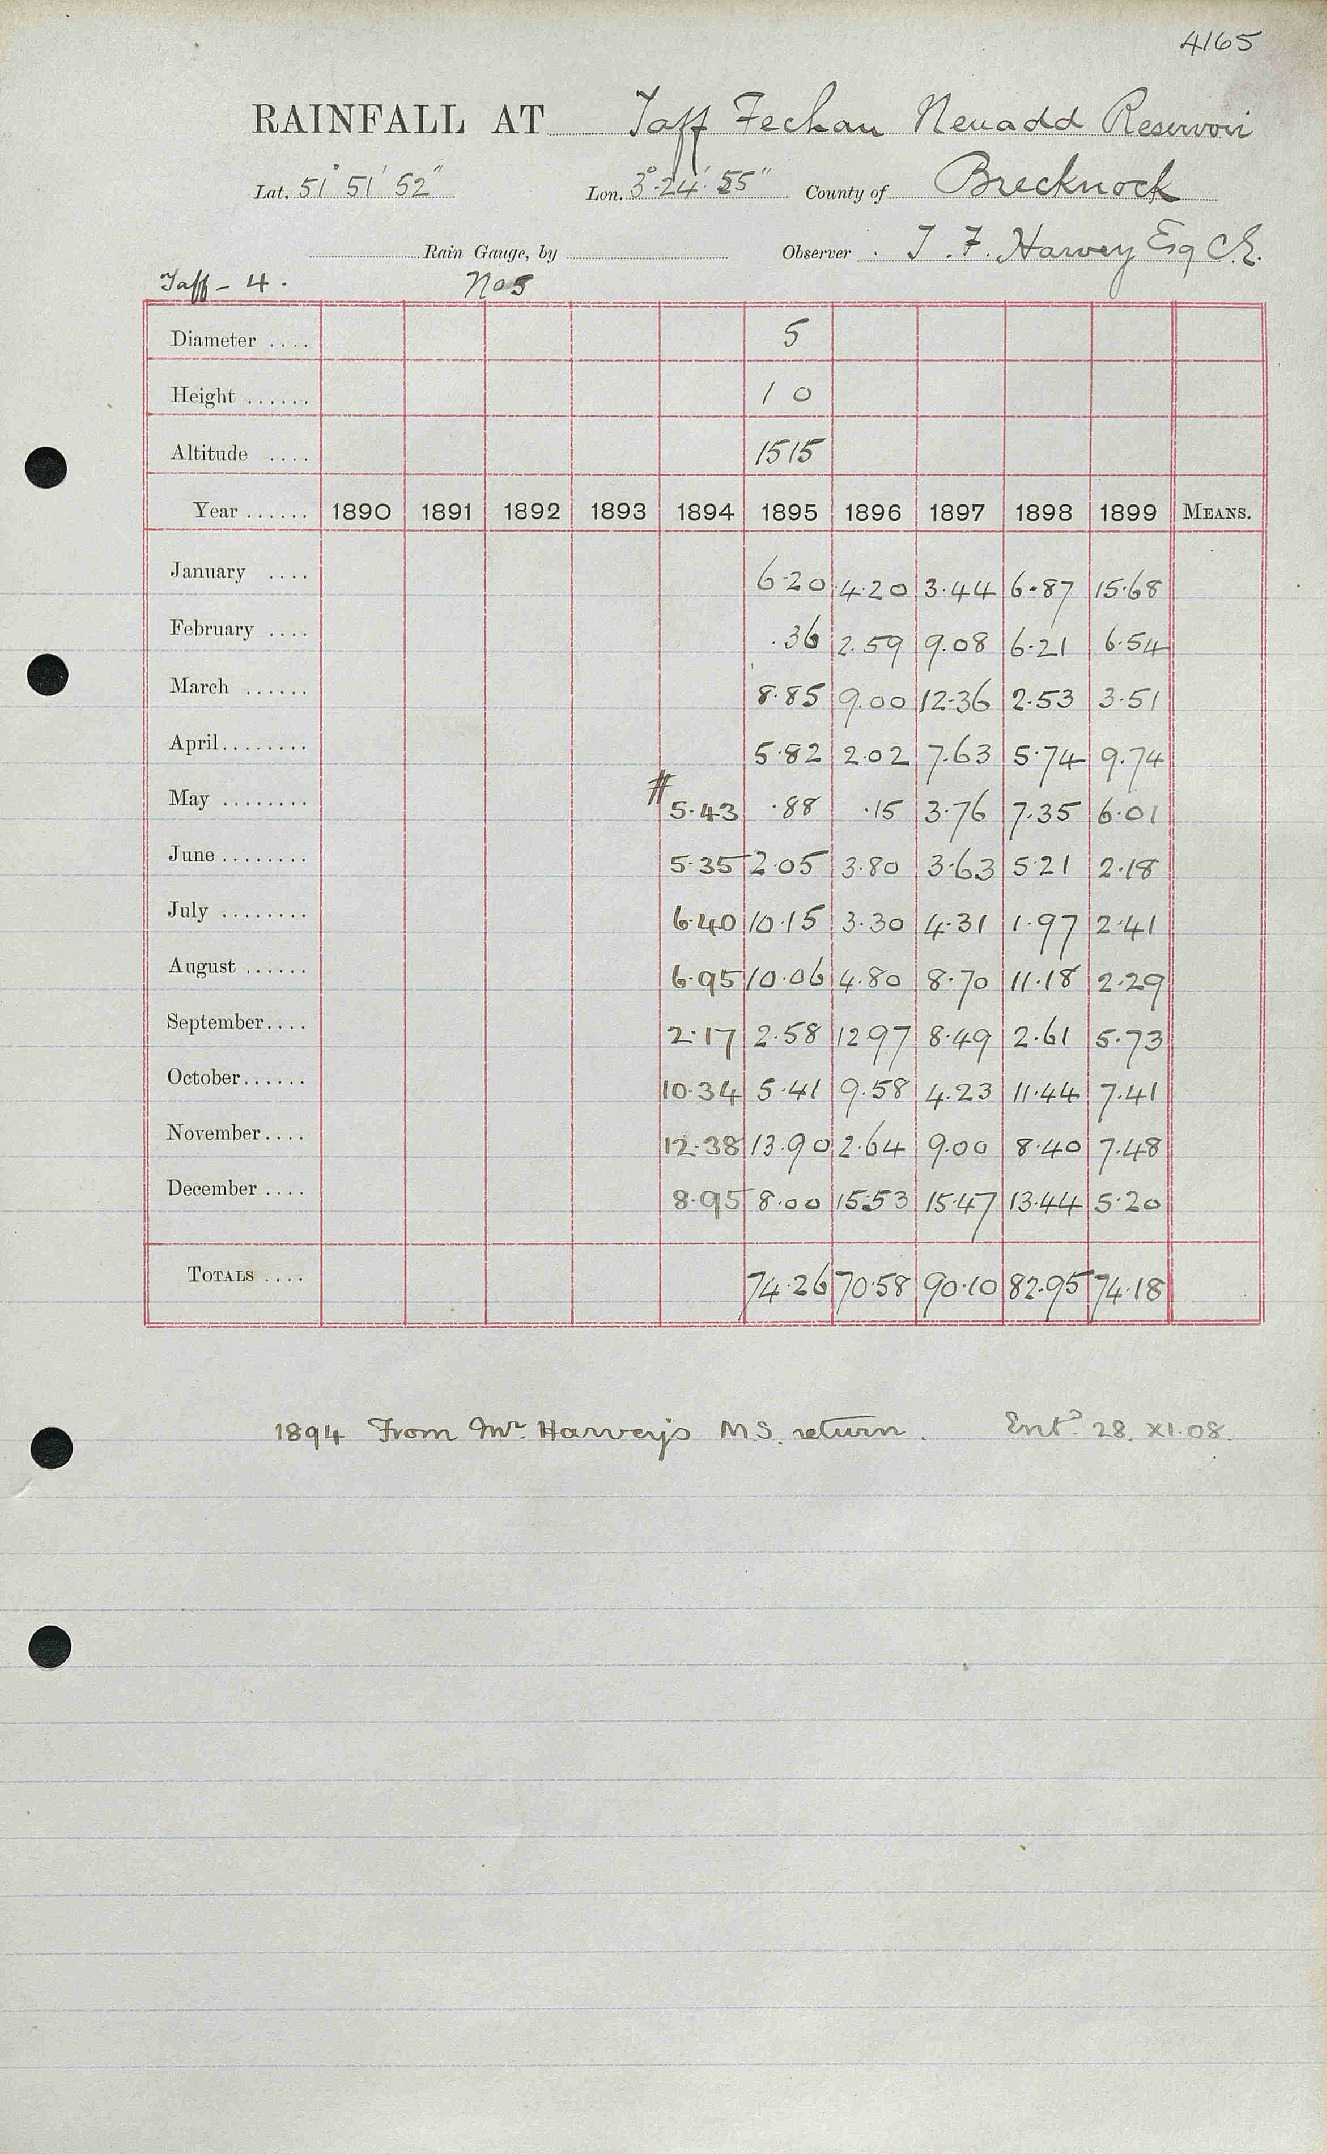 4165
RAINFALL AT Taff Fechan Neuadd Reservoir
Lat. 51° 51' 52" Lon. 3°-24'-55" County of Brecknock
Rain Gauge, by Observer T. F. Harvey Esq C.E.
Taff - 4. No 5
Diameter .... 5
Height ...... 1 0
Altitude .... 1515
Year ...... 1890 1891 1892 1893 1894 1895 1896 1897 1898 1899 MEANS.
January .... 6.20 4.20 3.44 6.87 15.68
February .... .36 2.59 9.08 6.21 6.54
March ...... 8.85 9.00 12.36 2.53 3.51
April........ 5.82 2.02 7.63 5.74 9.74
May ........ # 5.43 .88 .15 3.76 7.35 6.01
June ........ 5.35 2.05 3.80 3.63 5.21 2.18
July ........ 6.40 10.15 3.30 4.31 1.97 2.41
August ...... 6.95 10.06 4.80 8.70 11.18 2.29
September.... 2.17 2.58 12.97 8.49 2.61 5.73
October...... 10.34 5.41 9.58 4.23 11.44 7.41
November.... 12.38 13.90 2.64 9.00 8.40 7.48
December .... 8.95 8.00 15.53 15.47 13.44 5.20
TOTALS .... 74.26 70.58 90.10 82.95 74.18
1894 From Mr. Harvey's MS. return. Entd 28.XI.08.